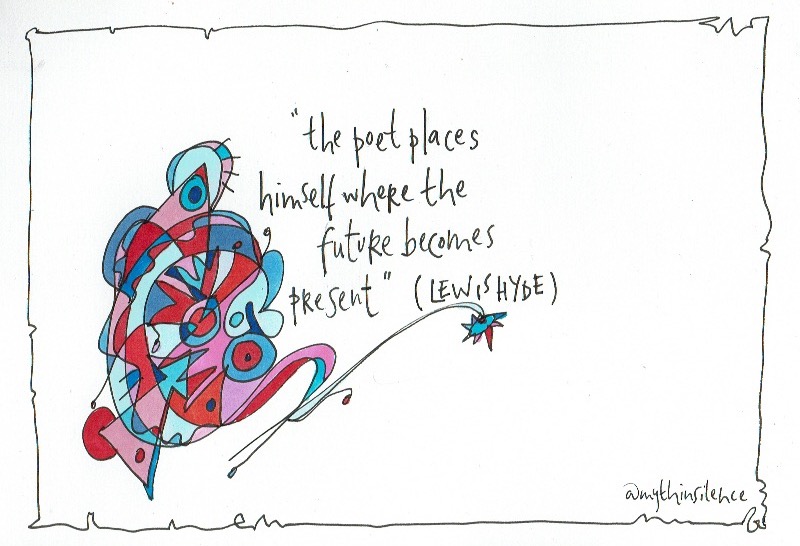 "the poet places
himself where the
future becomes
present" (LEWIS HYDE)
@mythinsilence